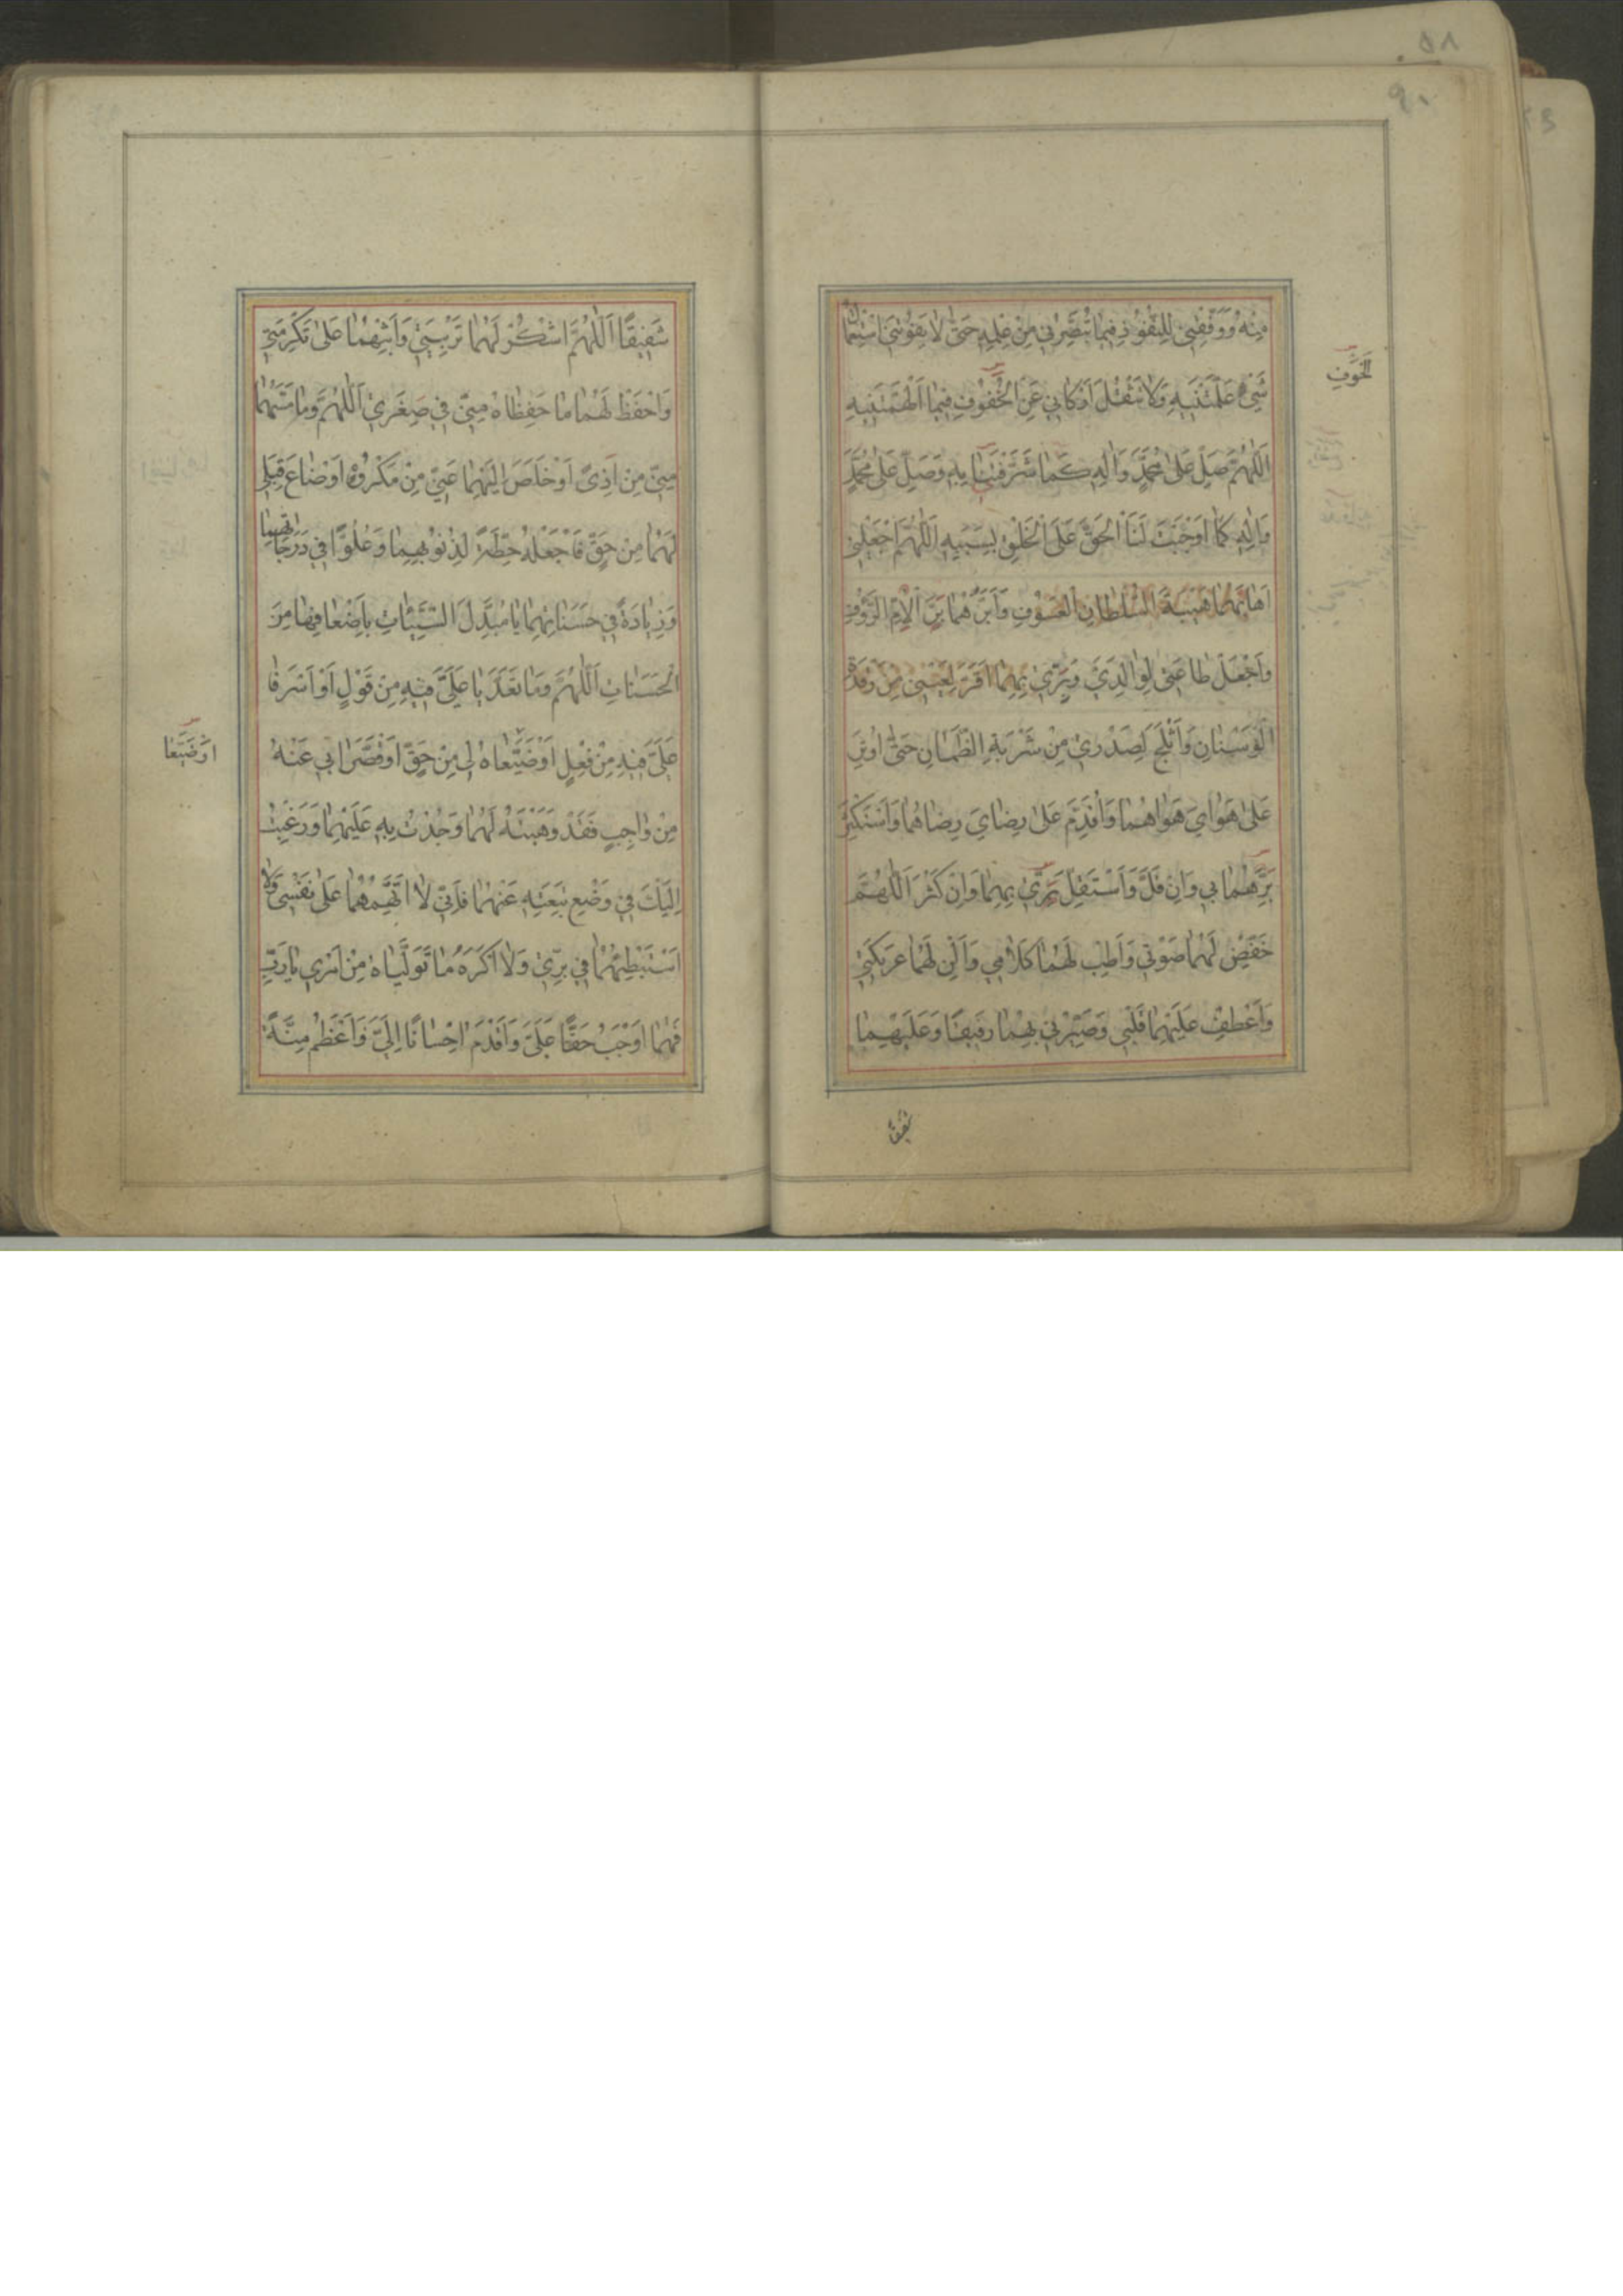 مِنْهُ وَوَفِّقْنِي لِلنُّفُوذِ فِيمَا تُبَصِّرُنِي مِنْ عِلْمِهِ حَتَّى لَا يَفُوتَنِي اسْتِعْمَالُ
شَيْءٍ عَلَّمْتَنِيهِ وَلَا تَثْقُلَ أَرْكَانِي عَنِ الْحُفُوفِ فِيمَا أَلْهَمْتَنِيهِ
اَللّٰهُمَّ صَلِّ عَلَى مُحَمَّدٍ وَآلِهِ كَمَا شَرَّفْتَنَا بِهِ وَصَلِّ عَلَى مُحَمَّدٍ
وَآلِهِ كَمَا أَوْجَبْتَ لَنَا الْحَقَّ عَلَى الْخَلْقِ بِسَبَبِهِ اَللّٰهُمَّ اجْعَلْنِي
أَهَابُهُمَا هَيْبَةَ السُّلْطَانِ الْعَسُوفِ وَأَبَرُّهُمَا بِرَّ الْأُمِّ الرَّؤُفِ
وَاجْعَلْ طَاعَتِي لِوَالِدَيَّ وَبِرِّي بِهِمَا أَقَرَّ لِعَيْنِي مِنْ رَقْدَةِ
الْوَسْنَانِ وَأَثْلَجَ لِصَدْرِي مِنْ شَرْبَةِ الظَّمْآنِ حَتَّى أُوثِرَ
عَلَى هَوَايَ هَوَاهُمَا وَأُقَدِّمَ عَلَى رِضَايَ رِضَاهُمَا وَأَسْتَكْثِرَ
بِرَّهُمَا بِي وَإِنْ قَلَّ وَأَسْتَقِلَّ بِرِّي بِهِمَا وَإِنْ كَثُرَ اَللّٰهُمَّ
خَفِّضْ لَهُمَا صَوْتِي وَأَطِبْ لَهُمَا كَلَامِي وَأَلِنْ لَهُمَا عَرِيكَتِي
وَاعْطِفْ عَلَيْهِمَا قَلْبِي وَصَيِّرْنِي بِهِمَا رَفِيقًا وَعَلَيْهِمَا
شَفِيقًا
شَفِيقًا اَللّٰهُمَّ اشْكُرْ لَهُمَا تَرْبِيَتِي وَأَثِبْهُمَا عَلَى تَكْرِمَتِي
وَاحْفَظْ لَهُمَا مَا حَفِظَاهُ مِنِّي فِي صِغَرِي اَللّٰهُمَّ وَمَا مَسَّهُمَا
مِنِّي مِنْ أَذًى أَوْ خَلَصَ إِلَيْهِمَا عَنِّي مِنْ مَكْرُوهٍ أَوْ ضَاعَ قِبَلِي
لَهُمَا مِنْ حَقٍّ فَاجْعَلْهُ حِطَّةً لِذُنُوبِهِمَا وَعُلُوًّا فِي دَرَجَاتِهِمَا
وَزِيَادَةً فِي حَسَنَاتِهِمَا يَا مُبَدِّلَ السَّيِّئَاتِ بِأَضْعَافِهَا مِنَ
الْحَسَنَاتِ اَللّٰهُمَّ وَمَا تَعَدَّيَا عَلَيَّ فِيهِ مِنْ قَوْلٍ أَوْ أَسْرَفَا
عَلَيَّ فِيهِ مِنْ فِعْلٍ أَوْ ضَيَّعَاهُ لِي مِنْ حَقٍّ أَوْ قَصَّرَا بِي عَنْهُ
أَوْ ضَيَّعَا
مِنْ وَاجِبٍ فَقَدْ وَهَبْتُهُ لَهُمَا وَجُدْتُ بِهِ عَلَيْهِمَا وَرَغِبْتُ
إِلَيْكَ فِي وَضْعِ تَبِعَتِهِ عَنْهُمَا فَإِنِّي لَا أَتَّهِمُهُمَا عَلَى نَفْسِي وَلَا
أَسْتَبْطِئُهُمَا فِي بِرِّي وَلَا أَكْرَهُ مَا تَوَلَّيَاهُ مِنْ أَمْرِي يَا رَبِّ
فَهُمَا أَوْجَبُ حَقًّا عَلَيَّ وَأَقْدَمُ إِحْسَانًا إِلَيَّ وَأَعْظَمُ مِنَّةً